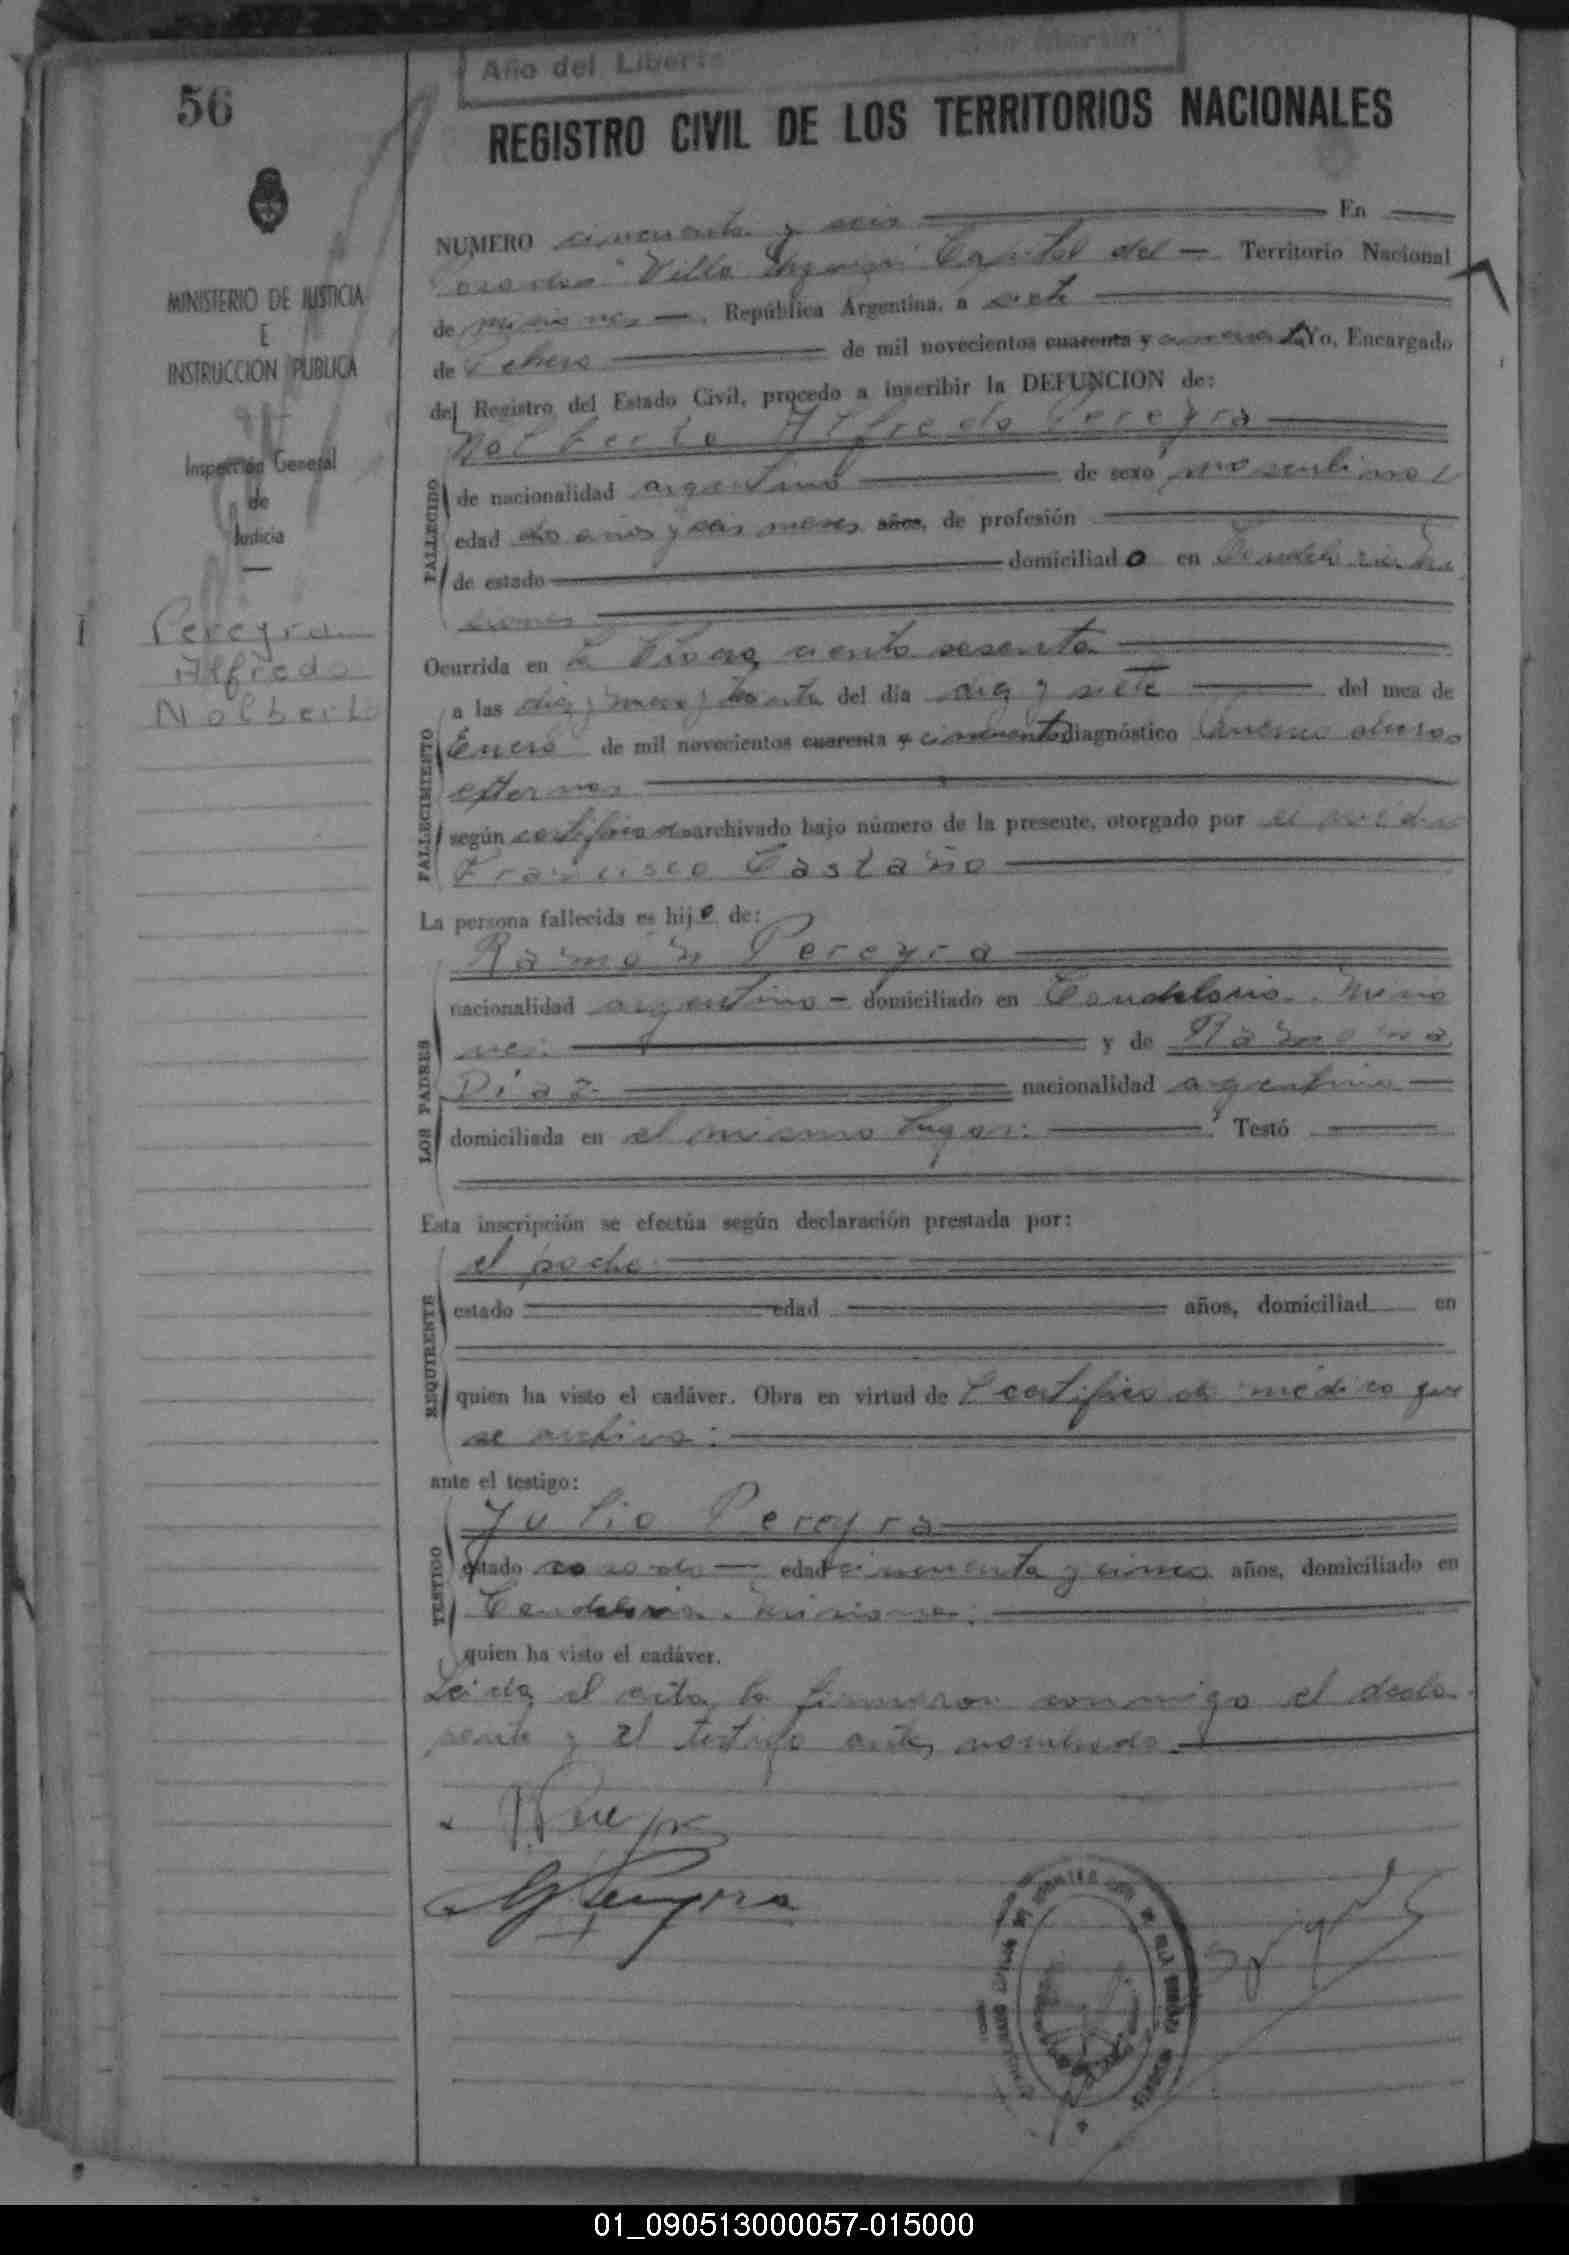 Año del Liberta San Martín"
56
REGISTRO CIVIL DE LOS TERRITORIOS NACIONALES
MINISTERIO DE JUSTICIA
E
INSTRUCCION PUBLICA
Inspección General
de
Justicia
Pereyra
Alfredo
Nolberto
NUMERO cincuenta y seis En
Posadas "Villa Capital del Territorio Nacional
de Misiones República Argentina, a siete
de Febrero de mil novecientos cuarenta y cincuenta Yo, Encargado
del Registro del Estado Civil, procedo a inscribir la DEFUNCION de:
Nolberto Alfredo Pereyra
FALLECIDO
de nacionalidad argentino de sexo masculino
edad dos años y seis meses años, de profesión
de estado domiciliado en Candelaria Mi
siones
Ocurrida en La ciento sesenta
FALLECIMIENTO
a las diez y treinta del día diez y siete del mes de
Enero de mil novecientos cuarenta y cincuenta diagnóstico
según certificado archivado bajo número de la presente, otorgado por el
Francisco Castaño
La persona fallecida es hijo de:
LOS PADRES
Ramón Pereyra
nacionalidad argentino domiciliado en Candelaria. Misio
nes. y de Ramona
Diaz nacionalidad argentina
domiciliada en el mismo lugar. Testó
Esta inscripción se efectúa según declaración prestada por:
REQUIRENTE
el padre
estado edad años, domiciliad en
quien ha visto el cadáver. Obra en virtud de certificado médico que
se archiva.
ante el testigo:
TESTIGO
Julio Pereyra
estado casado edad cincuenta y cinco años, domiciliado en
Candelaria. Misiones.
quien ha visto el cadáver.
Leida el acta, la firmaron conmigo el decla
rante y el testigo antes nombrado.
Pereyra
Pereyra
01_090513000057-015000